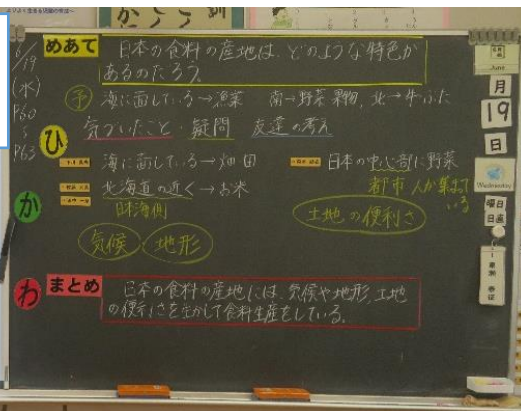 6/19
(水)
P60
〜
P63
めあて
日本の食料の産地は、どのような特色が
あるのだろう。
予 海に面している→漁業 南→野菜 果物、北→牛ぶた
ひ
気づいたこと・疑問 友達の考え
海に面している→畑 田
北海道の近く→お米
日本海側
日本の中心部に野菜
都市 人が集まって
いる
土地の便利さ
か
気候・地形
わ
まとめ
日本の食料の産地には、気候や地形、土地
の便利さを生かして食料生産をしている。
June
月
19
日
Wednesday
曜日
日直